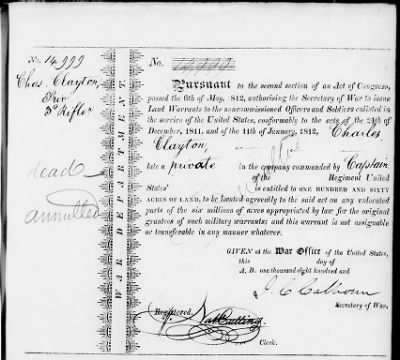 No. 14,999
Chas. Clayton,
Priv
3d Rifles
dead
annulled
WAR DEPARTMENT.
No. 14,999
Pursuant to the second section of an Act of Congress,
passed the 6th of May, 812, authorising the Secretary of War to issue
Land Warrants to the noncommissioned Officers and Soldiers enlisted in
the service of the United States, conformably to the acts of the 24th of
December, 1811, and of the 11th of January, 1812, Charles
Clayton,
late a private in the company commanded by Captain
of the Regiment United
States' is entitled to ONE HUNDRED AND SIXTY
ACRES OF LAND, to be located agreeably to the said act on any unlocated
parts of the six millions of acres appropriated by law for the original
grantees of such military warrants; and this warrant is not assignable
or transferable in any manner whatever.
GIVEN at the War Office of the United States,
this day of
A. D. one thousand eight hundred and
J. C. Calhoun
Secretary of War.
Registered.
Nat Cutting
Clerk.